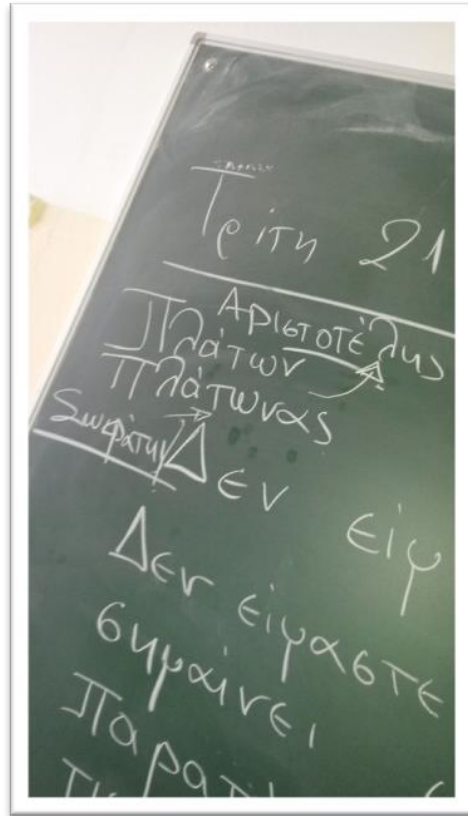 Τρίτη 21
Αριστοτέλης
Πλάτων
Πλάτωνας
Δεν είμ
Δεν είμαστε
σημαίνει
Παρατ